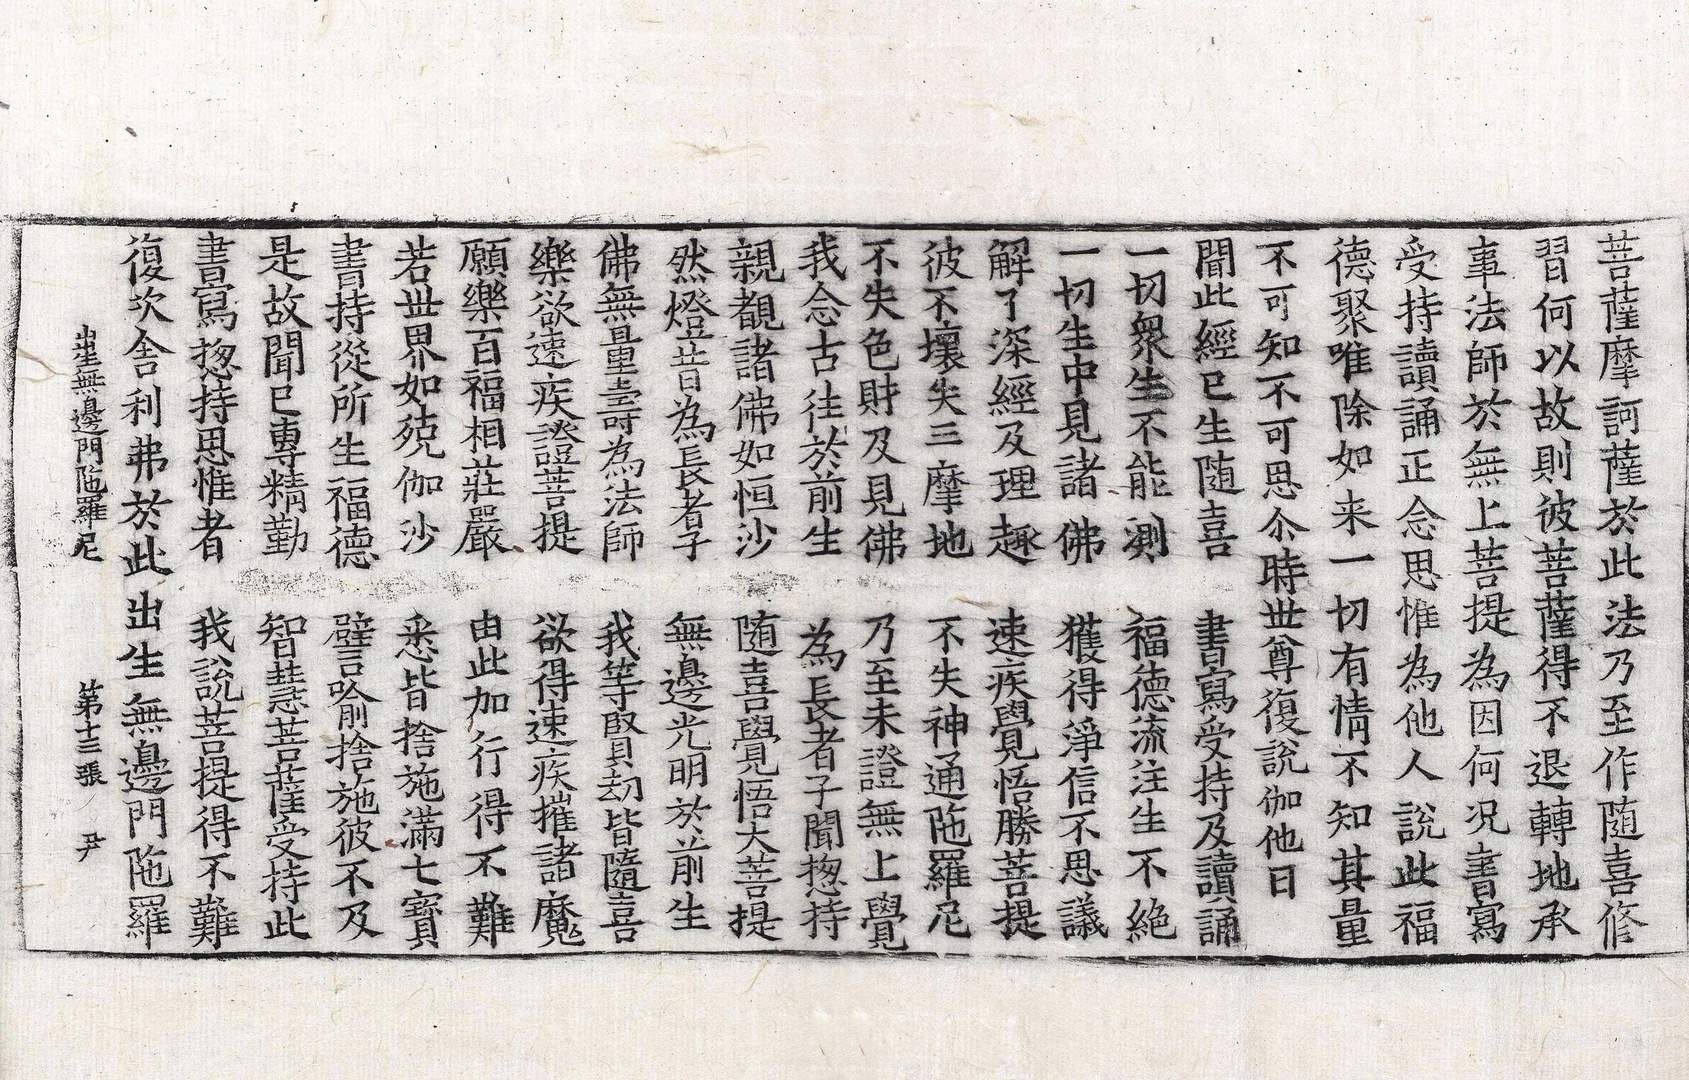 菩薩摩訶薩於此法乃至作随喜修
習何以故則彼菩薩得不退轉地承
事法師於無上菩提為因何况書寫
受持讀誦正念思惟為他人說此福
德聚唯除如来一切有情不知其量
不可知不可思尒時世尊復說伽他曰
聞此經已生随喜　書寫受持及讀誦
一切衆生不能測　福德流注生不絶
一切生中見諸佛　獲得淨信不思議
解了深經及理趣　速疾覺悟勝菩提
彼不壞失三摩地　不失神通陁羅尼
不失色財及見佛　乃至未證無上覺
我念古往於前生　為長者子聞揔持
親覩諸佛如恒沙　随喜覺悟大菩提
然燈昔為長者子　無邊光明於前生
佛無量壽為法師　我等賢劫皆隨喜
樂欲速疾證菩提　欲得速疾摧諸魔
願樂百福相莊嚴　由此加行得不難
若世界如兢伽沙　悉皆捨施滿七寶
書持從所生福德　譬喻捨施彼不及
是故聞已專精勤　智慧菩薩受持此
書寫揔持思惟者　我說菩提得不難
復次舍利弗於此出生無邊門陁羅
出生無邊門陁羅尼　第十三張　尹